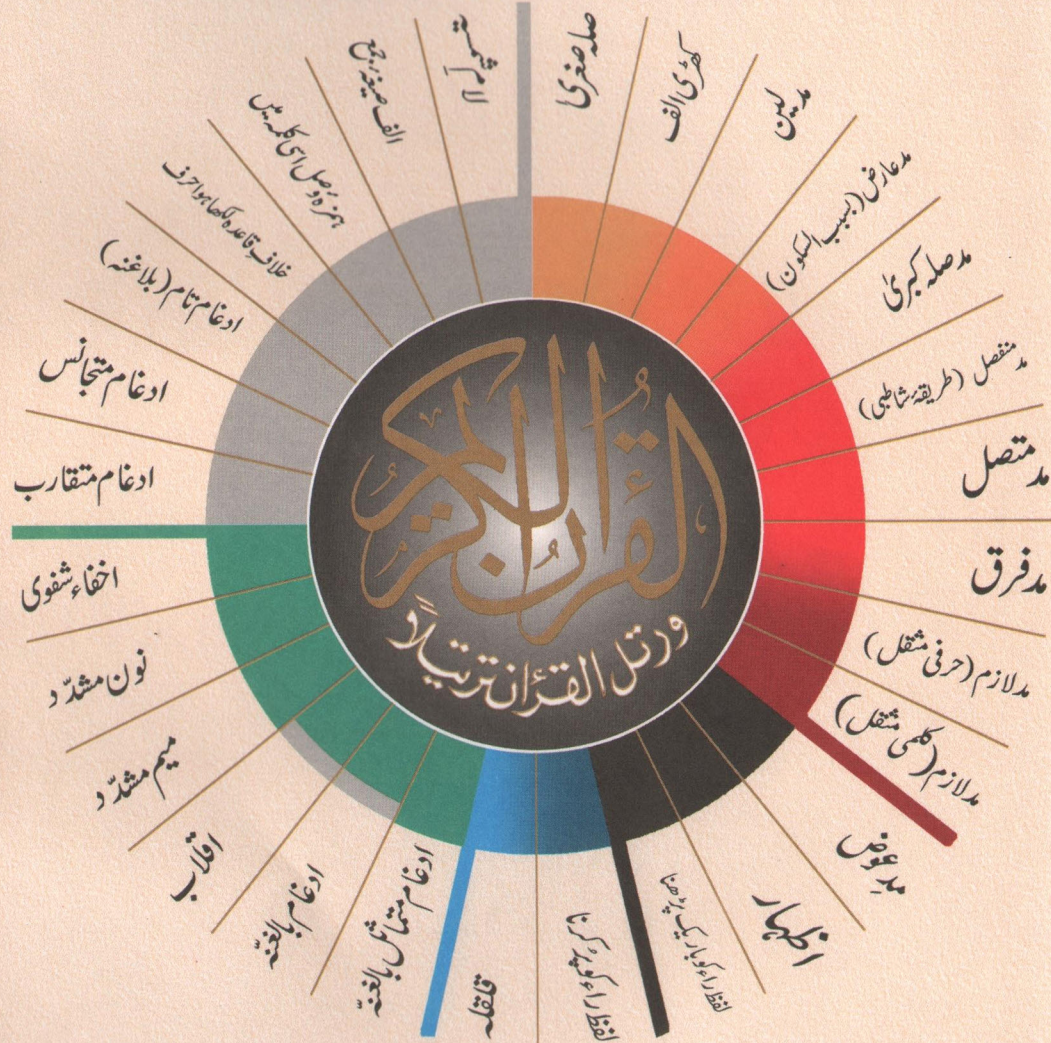 القرآن الكريم
ورتل القرءان ترتيلًا
صلہ صغریٰ
کھڑی الف
مد لین
مد عارض (بسبب السکون)
مد صلہ کبریٰ
مد منفصل (طریقۂ شاطبی)
مد متصل
مد فرق
مد لازم (حرفی مثقل)
مد لازم (کلمی مثقل)
مدِ عوض
اظہار
لفظ راء کو باریک پڑھنا
لفظ راء کو پُر کرنا
قلقلہ
ادغام متماثل بالغنّہ
ادغام بالغنّہ
اقلاب
میم مشدّد
نون مشدّد
اخفاء شفوی
ادغام متقارب
ادغام متجانس
ادغام تام (بلا غنہ)
خلاف قاعدہ لکھا ہوا حرف
ہمزۂ وصل اسی کلمہ میں
الف صیغۂ جمع
لامِ شمسیہ